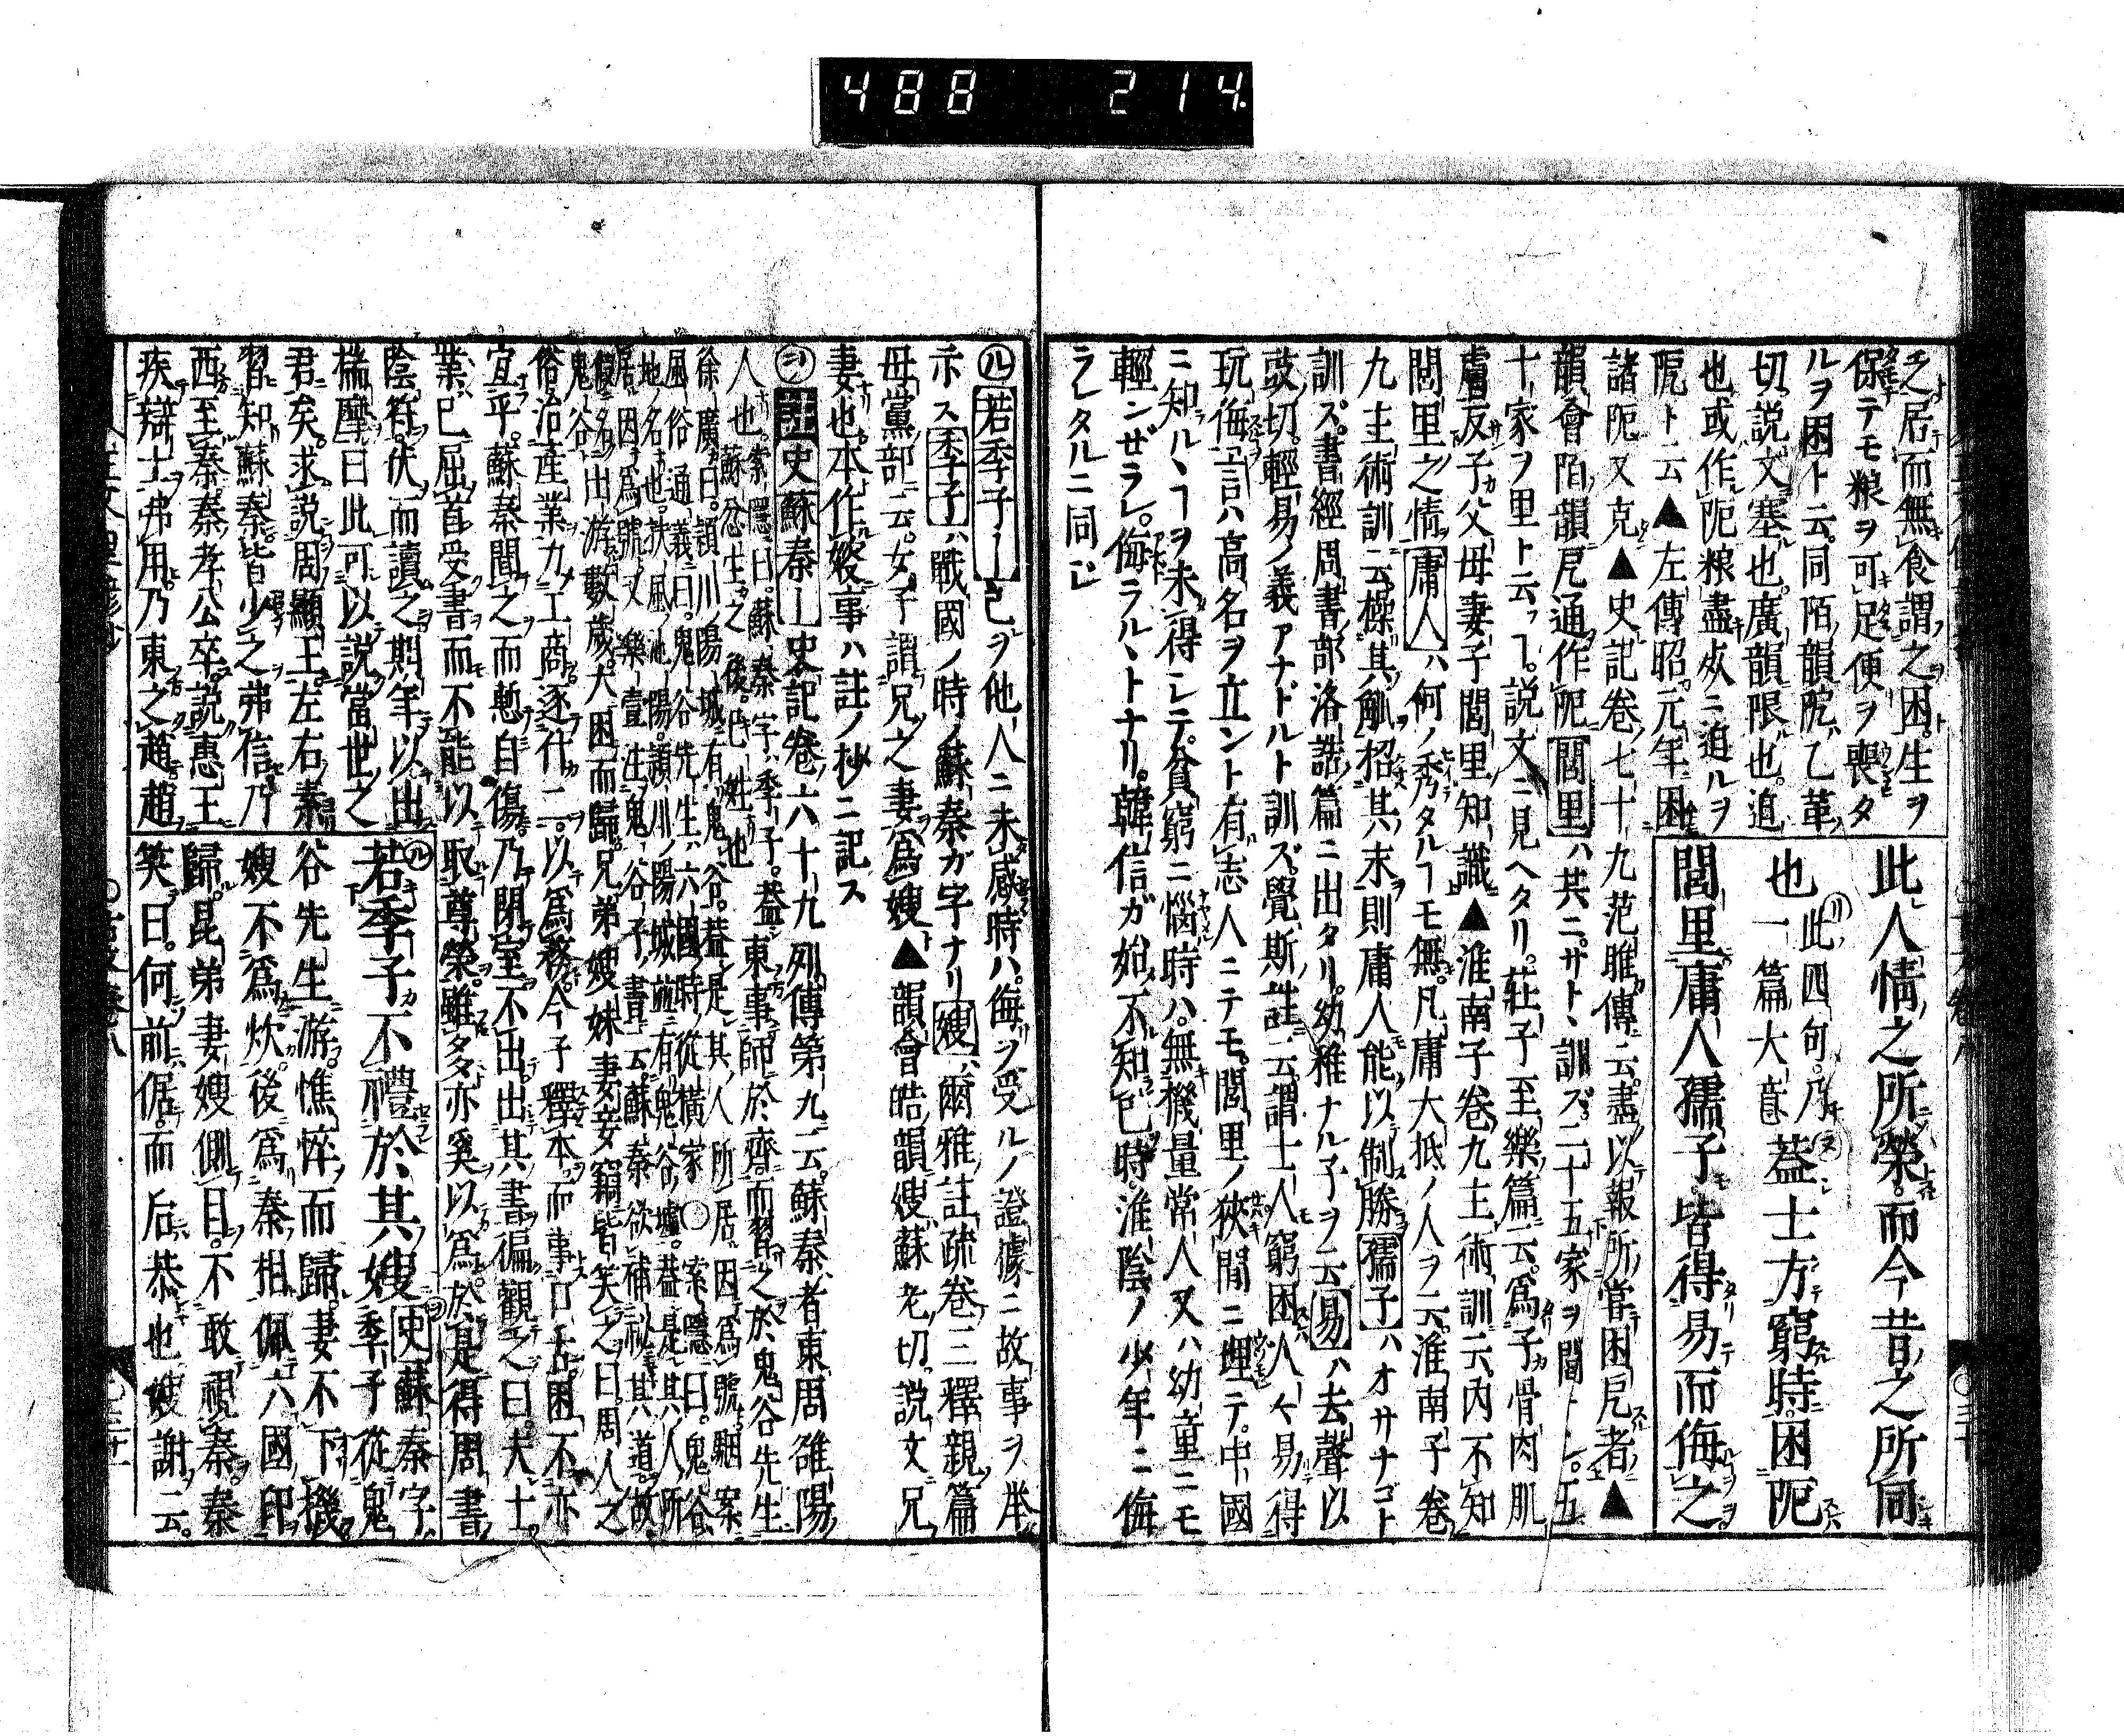 488 214
乏居而無食謂之困生ヲ
保テモ粮ヲ可足便ヲ喪タ
ルヲ困ト云同陌韻阨乙革
切説文塞也廣韻限也迫
也或作阨粮盡処ニ迫ルヲ
阨ト云▲左傳昭元年困
諸阨又克▲史記卷七十九范睢傳云盡以報所嘗困戹者▲
韻會陌韻戹通作阨閭里ハ共ニサト訓ズ二十五家ヲ閭トシ五
十家ヲ里ト云フ説文ニ見ヘタリ莊子至樂篇云爲子骨肉肌
膚反子父母妻子閭里知識▲淮南子卷九主術訓云内不知
閭里之情庸人ハ何ノ秀タルヿモ無凡庸大抵ノ人ヲ云淮南子卷
九主術訓云操其觚招其末則庸人能以制勝孺子ハオサナゴト
訓ズ書經周書部洛誥篇ニ出タリ幼稚ナル子ヲ云易ハ去聲以
豉切輕易ノ義アナドルト訓ズ覺斯註云謂士人窮困人々易得
玩侮言ハ高名ヲ立ント有志人ニテモ閭里ノ狹間ニ埋テ中國
ニ知ルヽヿヲ未得シテ貧窮ニ惱時ハ無機量常人又ハ幼童ニモ
輕ンゼラレ侮ラルヽトナリ韓信ガ始不知已時淮陰ノ少年ニ侮
ラレタルニ同シ
此人情之所榮而今昔之所同
也此四句乃一篇大意蓋士方窮時困阨
閭里庸人孺子皆得易而侮之
若季子已ヲ他人ニ未感時ハ侮ヲ受ルノ證據ニ故事ヲ挙
示ス季子ハ戰國ノ時ノ蘇秦ガ字ナリ嫂ハ爾雅註疏卷三釋親篇
母黨部云女子謂兄之妻爲嫂▲韻會皓韻嫂蘇老切説文兄
妻也本作㛐事ハ註ノ抄ニ記ス
註史蘇秦史記卷六十九列傳第九云蘇秦者東周雒陽
人也索隱曰蘇秦字季子蓋蘇忿生之後已姓也東事師於齊而習之於鬼谷先生
徐廣曰潁川陽城有鬼谷蓋是其人所居因爲號駰案
風俗通義曰鬼谷先生六國時從横家○索隱曰鬼谷
地名也扶風池陽潁川陽城並有鬼谷墟蓋是其人所
居因爲號又樂壹注鬼谷子書云蘇秦欲補祕其道故
假名鬼谷出游數歳大困而歸兄弟嫂妹妻妾竊皆笑之曰周人之
俗治産業力工商逐什二以爲務今子釋本而事口舌困不亦
宜乎蘇秦聞之而慙自傷乃閉室不出出其書徧觀之曰夫士
業已屈首受書而不能以取尊榮雖多亦奚以爲於是得周書
陰符伏而讀之期年以出
揣摩曰此可以説當世之
君矣求説周顯王左右素
習知蘇秦皆少之弗信乃
西至秦秦孝公卒説惠王
疾辯士弗用乃東之趙趙
若季子不禮於其嫂史蘇秦字季子從鬼
谷先生游憔悴而歸妻不下機
嫂不爲炊後爲秦相佩六國印
歸昆弟妻嫂側目不敢視秦秦
笑曰何前倨而后恭也嫂謝云